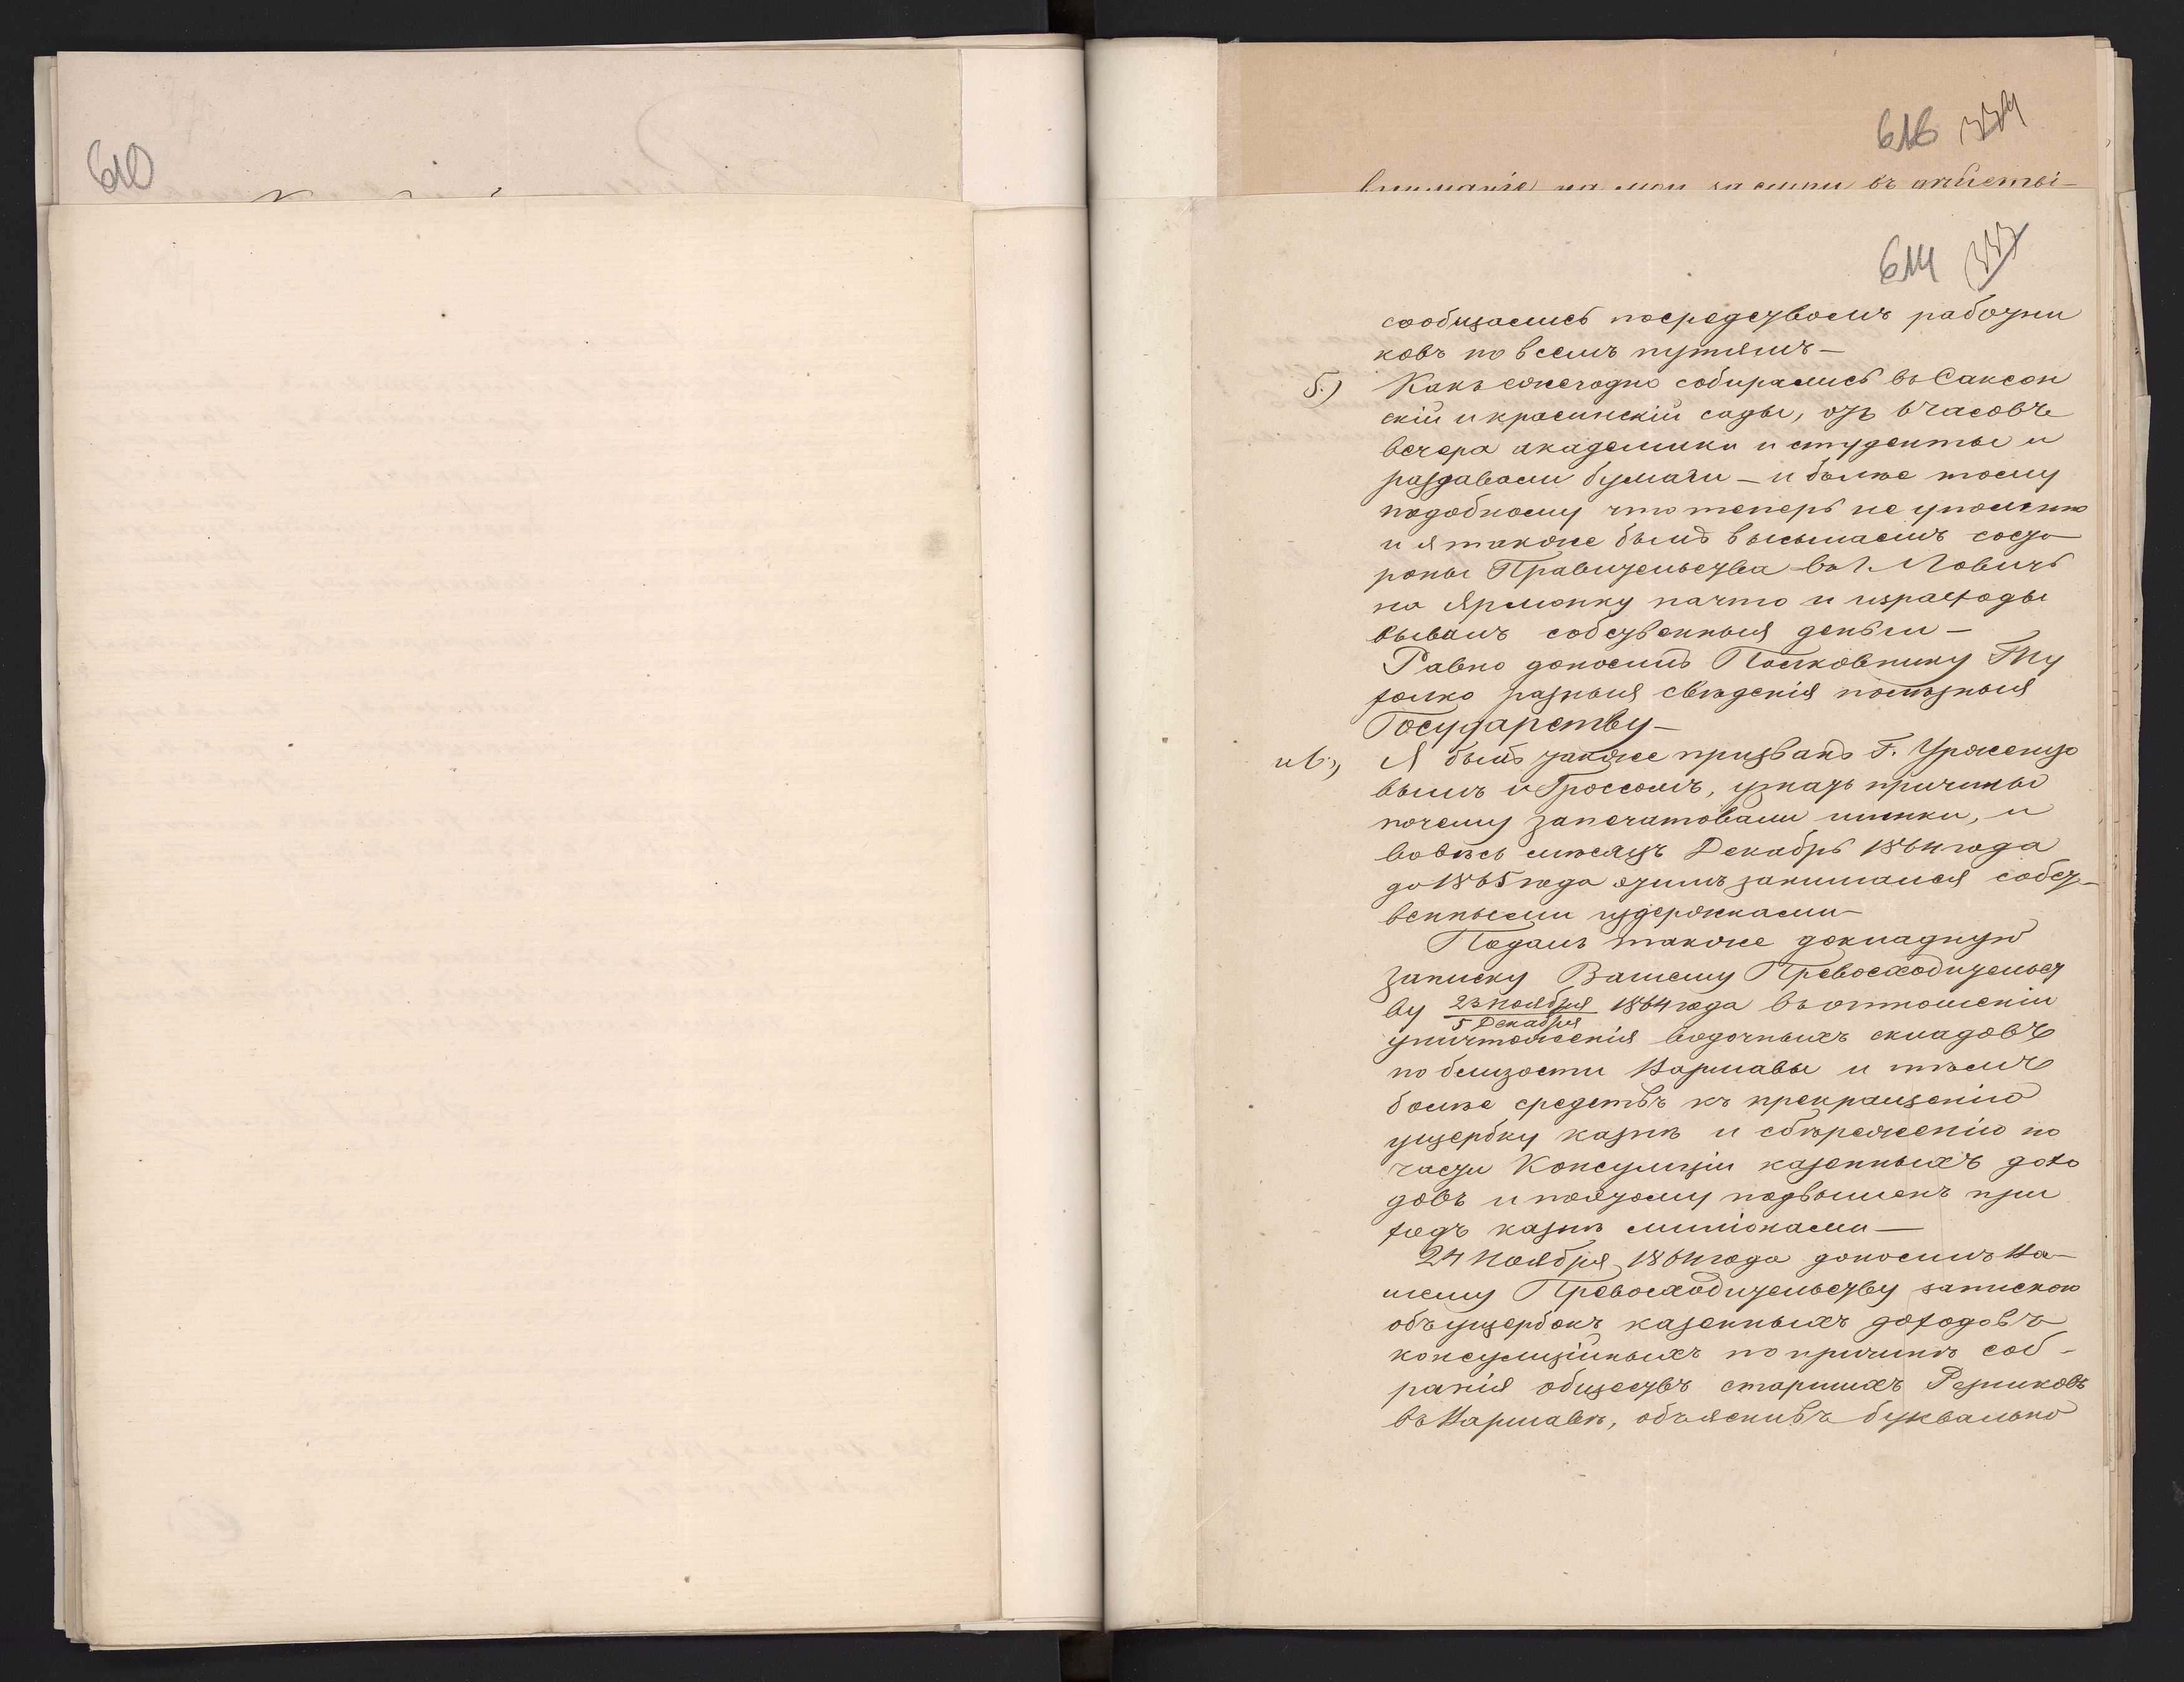 610
616 334
вниманіе на мои
614 333
сообщались посредсувомъ рабочни
ковъ по всемъ путямъ —
5.) Какъ ежегодно собирались въ Саксон
скій и красинскій сады, отъ 6 часовъ
вечера академики и студенты и
раздавали бумаги — и более тому
подобному что теперь не упомину
и я также былъ высылаемъ сосуо
роны Правительства въ г. Ловичъ
на Ярмонку начто и израсходы
вывалъ собсувенныя деньги —
Равно доносилъ Полковнику Ту
холко разныя свѣденія полезныя
Государству —
и 6.) Я былъ также призванъ Г.
вымъ и Гроссомъ, узнать причины
почему запечатовали шинки, и
вовесь мѣсяцъ Декабрь 1864 года
до 1865 года этимъ занимался собст-
венными издержками —
Подалъ также докладную
записку Вашему Превосходительст
ву 23 ноября / 5 Декабря 1864 года въ оттношеніи
уничтоженія водочныхъ складовъ
по близости Варшавы и тѣмъ
более средствъ къ прекращенію
ущербку казнѣ и сбѣреженію по
части Консумціи казенныхъ дохо
довъ и поэтому подвышенъ при
ходъ казнѣ миліонами —
24 Ноября 1864 года доносилъ Ва-
шему Превосходительству запискою
объ ущербокъ казенныхъ доходовъ
консумційныхъ по причинѣ соб-
ранія обществъ старшихъ Резниковъ
въ Варшавѣ, объяснивъ буквально